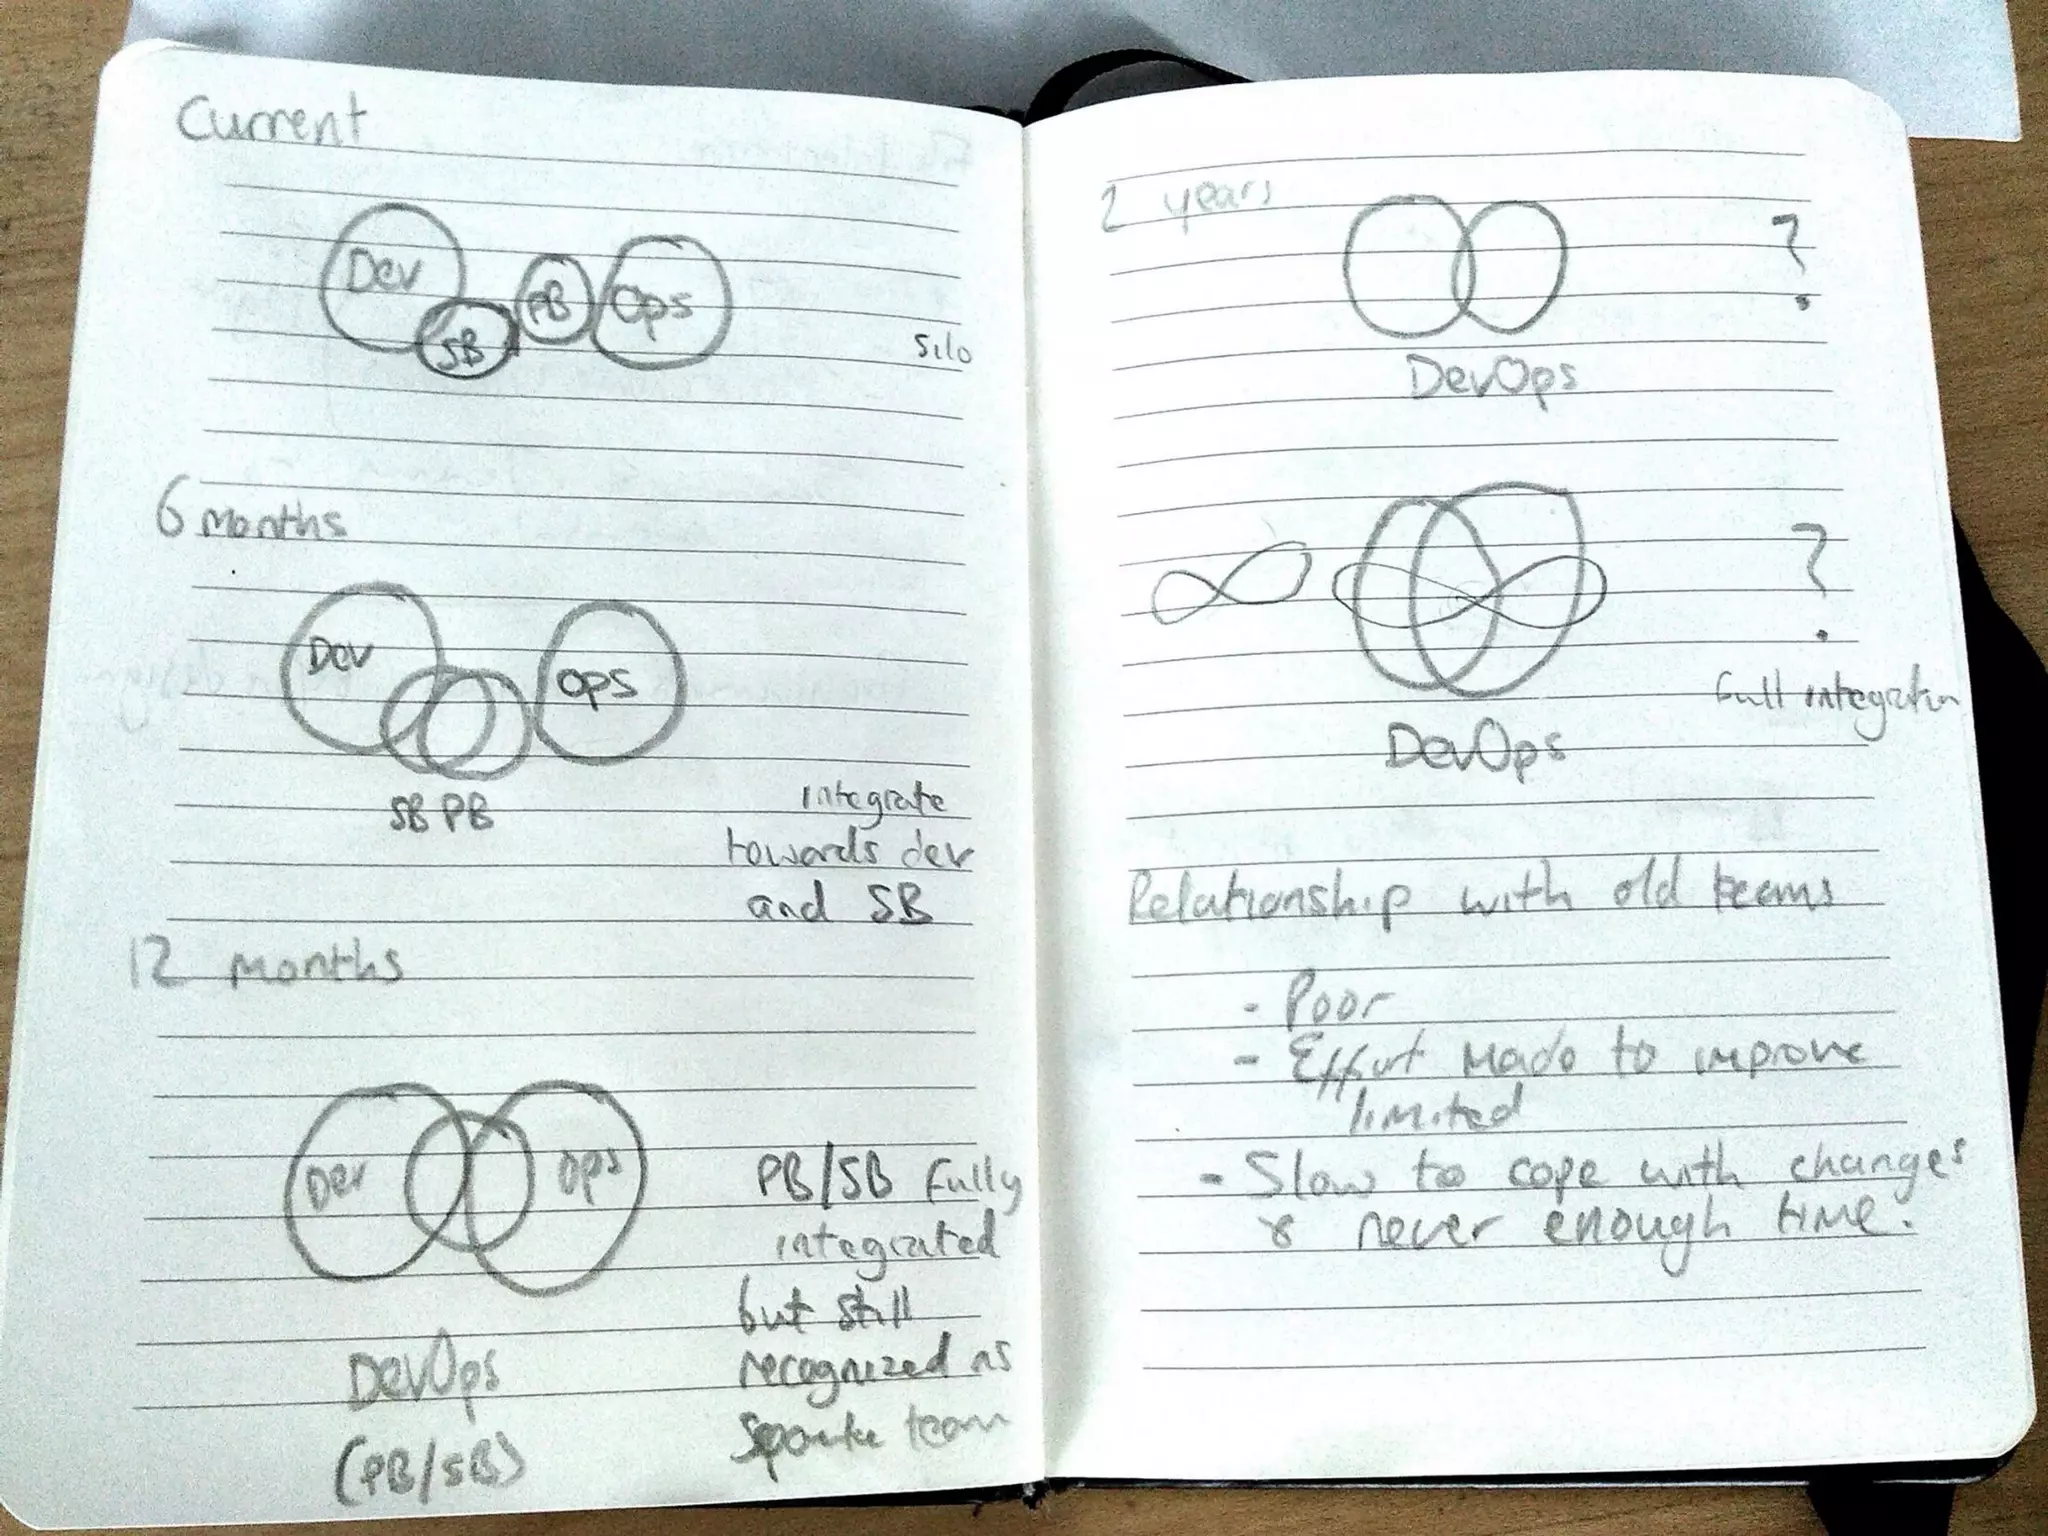 Current
Dev
SB
PB
Ops
Silo
6 months
Dev
Ops
SB PB
integrate
towards dev
and SB
12 months
Dev
Ops
PB/SB fully
integrated
but still
recognized as
team
DevOps
(PB/SB)
2 years
?
DevOps
?
Full integration
DevOps
Relationship with old teams
- Poor
- Effort made to improve
limited
- Slow to cope with changes
& never enough time.